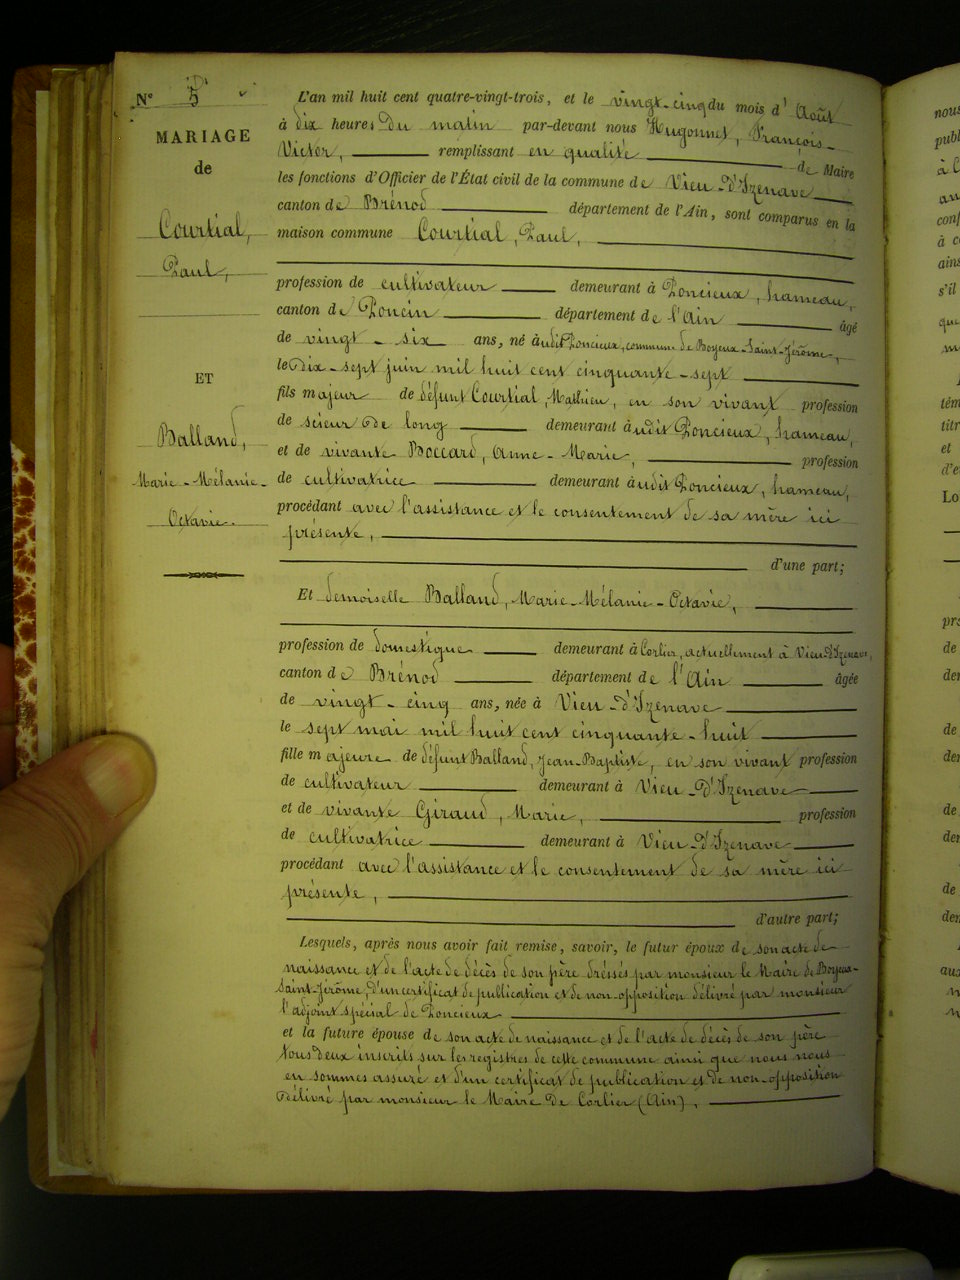 N° 5
MARIAGE
de
Courtial,
Paul,
ET
Balland,
Marie-Mélanie-
Octavie.
L'an mil huit cent quatre-vingt-trois, et le vingt-cinq du mois d'Août
à dix heures du matin par-devant nous Hugonnet, François-
Victor, remplissant en qualité de Maire
les fonctions d'Officier de l'État civil de la commune de Vieu-d'Izenave
canton de Brénod département de l'Ain, sont comparus en la
maison commune Courtial, Paul,
profession de cultivateur demeurant à Poncieux, hameau,
canton de Poncin département de l'Ain âgé
de vingt-six ans, né à udit Poncieux, commune de Boyeux-Saint-Jérôme,
le Dix-sept juin mil huit cent cinquante-sept
fils majeur de défunt Courtial, Mathieu, en son vivant profession
de scieur de long demeurant à udit Poncieux, hameau,
et de vivante Boccard, Anne-Marie, profession
de cultivatrice demeurant à udit Poncieux, hameau,
procédant avec l'assistance et le consentement de sa mère ici
présente,
d'une part;
Et demoiselle Balland, Marie-Mélanie-Octavie,
profession de domestique demeurant à Corlier, actuellement à Vieu-d'Izenave,
canton de Brénod département de l'Ain âgée
de vingt-cinq ans, née à Vieu-d'Izenave
le sept mai mil huit cent cinquante-huit
fille majeure de défunt Balland, Jean-Baptiste, en son vivant profession
de cultivateur demeurant à Vieu-d'Izenave
et de vivante Giraud, Marie, profession
de cultivatrice demeurant à Vieu-d'Izenave
procédant avec l'assistance et le consentement de sa mère ici
présente,
d'autre part;
Lesquels, après nous avoir fait remise, savoir, le futur époux de son acte de
naissance et de l'acte de décès de son père dressés par monsieur le Maire de Boyeux-
Saint-Jérôme, d'un certificat de publication et de non-opposition délivré par monsieur
l'adjoint spécial de Poncieux
et la future épouse de son acte de naissance et de l'acte de décès de son père
tous deux inscrits sur les registres de cette commune ainsi que nous nous
en sommes assuré et d'un certificat de publication et de non-opposition
délivré par monsieur le Maire de Corlier (Ain),